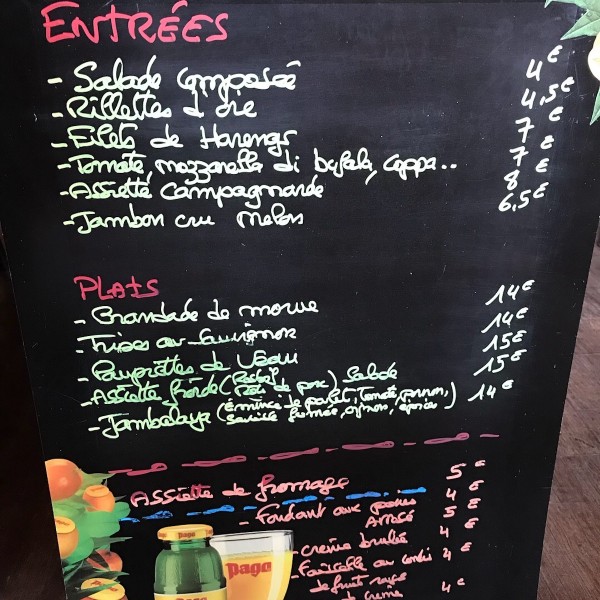 ENTRÉES
- Salade Composée 4€
- Rillettes d'oie 4,5€
- Filets de Harengs 7€
- Tomate, mozzarella di bufala, coppa.. 7€
- Assiette Campagnarde 8€
- Jambon cru melon 6,5€
PLATS
- Brandade de morue 14€
- Tripes au Sauvignon 14€
- Paupiettes de Veau 15€
- Assiette froide (Rosbif, Rôti de porc) Salade 15€
- Jambalaya (Émincé de poulet, Tomate, poivron, 14€
Saucisse fumée, oignon, épices)
Assiette de fromage 5€
- Fondant aux poires 4€
5€
- Crème brulée 4€
de fruit rouge 4€
de crème 4€
pago
pago